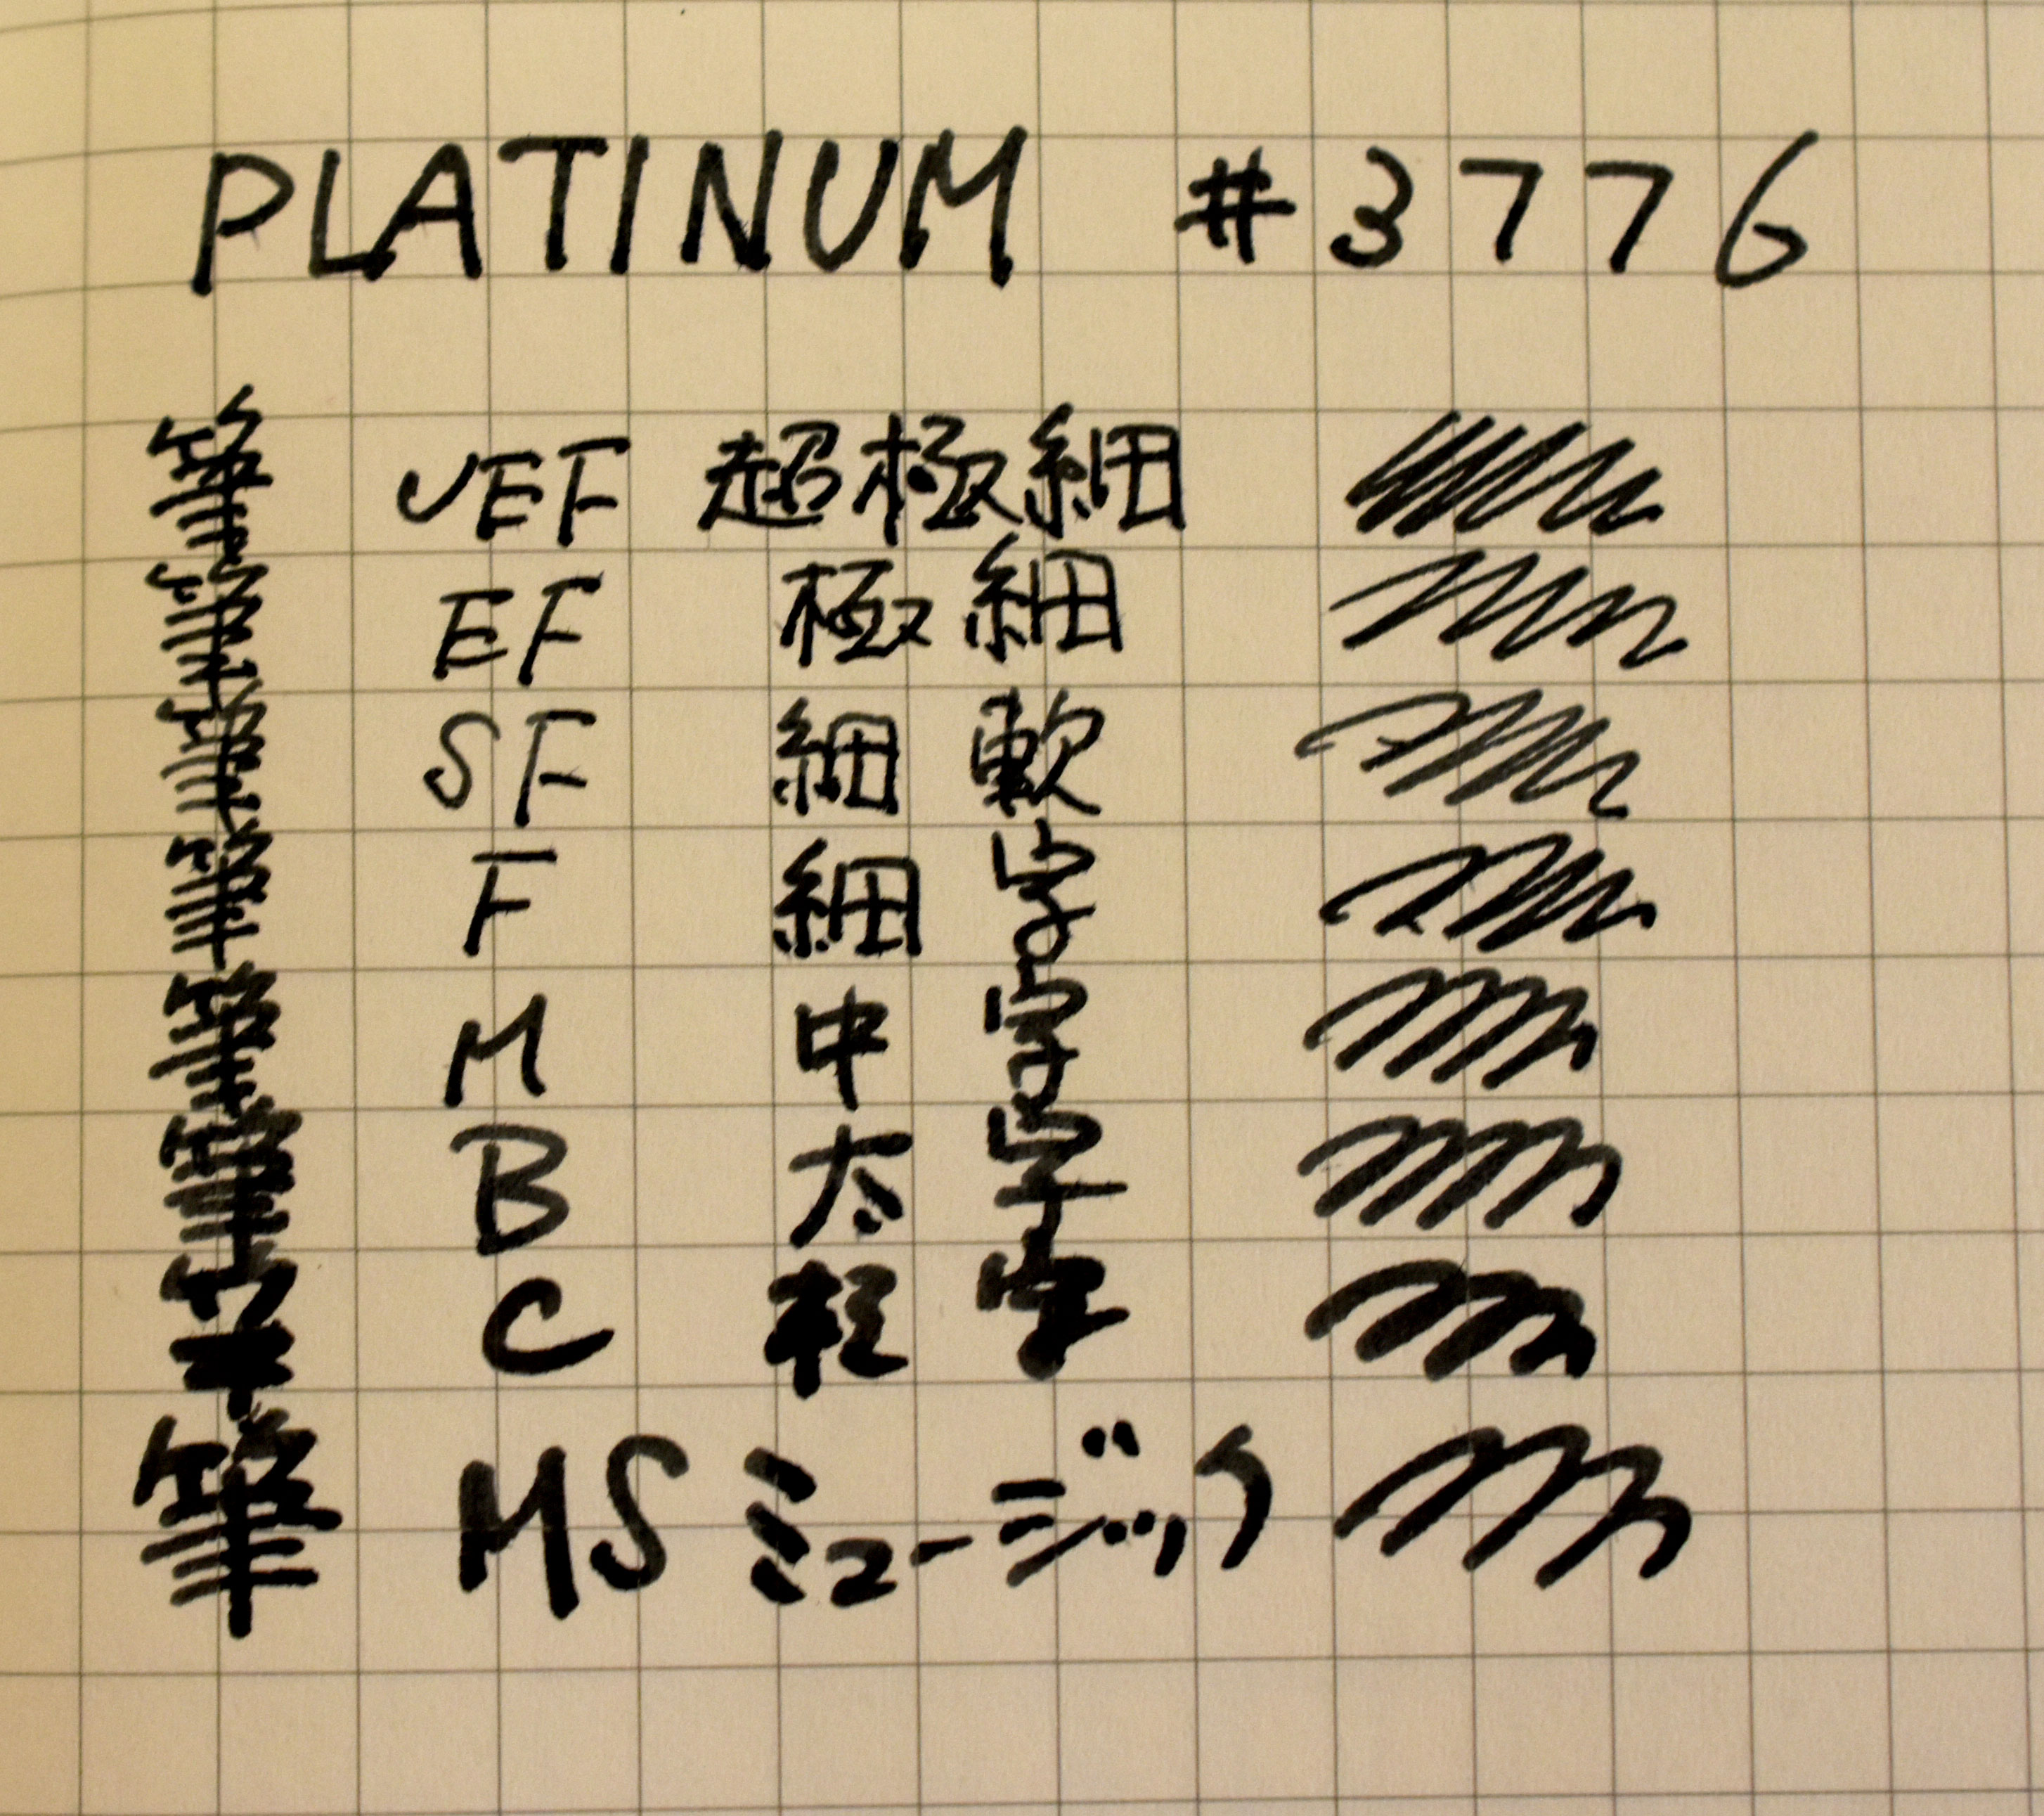 PLATINUM #3776
筆 UEF 超極細
筆 EF 極細
筆 SF 細軟
筆 F 細字
筆 M 中字
筆 B 太字
筆 C 極字
筆 MS ミュージック